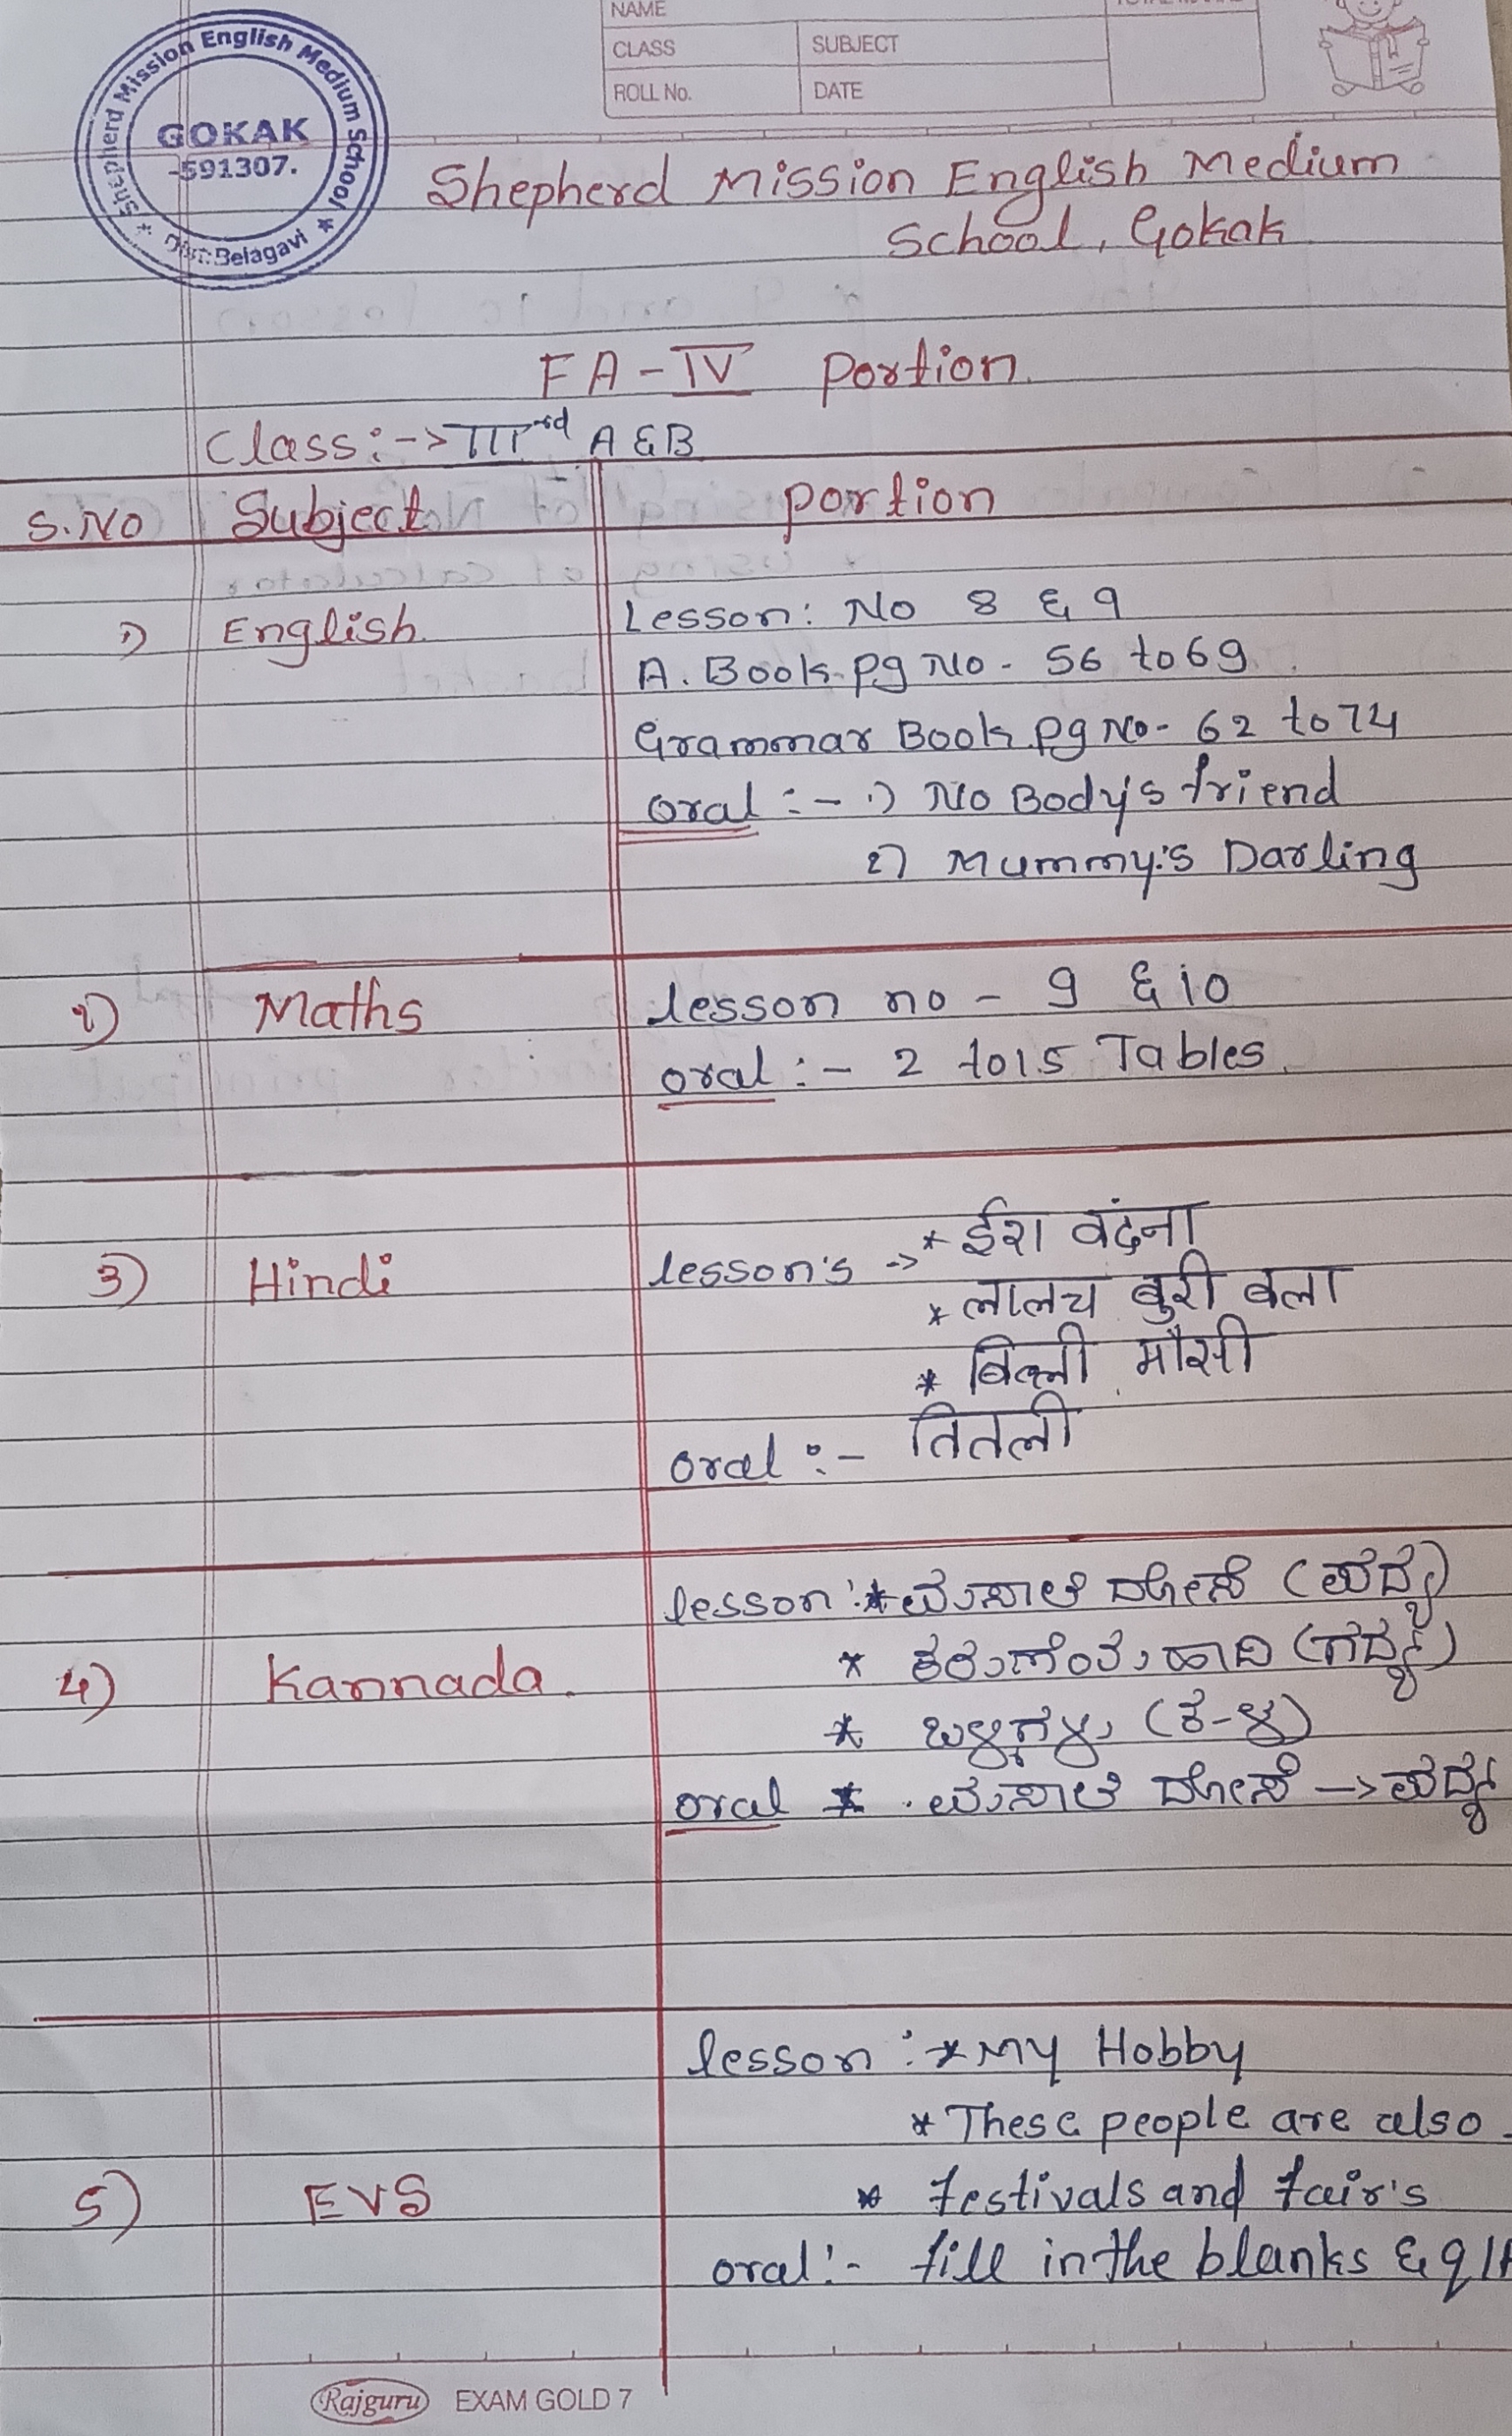 NAME
CLASS SUBJECT
ROLL No. DATE
Shepherd Mission English Medium School
GOKAK
-591307.
Dist: Belagavi
Shepherd Mission English Medium
School, Gokak
FA-IV Portion
Class:-> IIIrd A & B
S.NO Subject portion
1) English Lesson: No 8 & 9
A. Book pg No - 56 to 69
Grammar Book pg No- 62 to 74
oral :- 1) No Body's friend
2) Mummy's Darling
2) Maths lesson no - 9 & 10
oral :- 2 to 15 Tables
3) Hindi lesson's -> * ईश वंदना
* लालच बुरी बला
* बिल्ली मौसी
oral :- तितली
lesson :* ಮಸಾಲೆ ದೋಸೆ (ಪದ್ಯ)
4) Kannada. * ಹಾದಿ (ಗದ್ಯ)
* (ಕ-ಳ)
oral * ಮಸಾಲೆ ದೋಸೆ -> ಪದ್ಯ
lesson :* My Hobby
* These people are also
5) EVS * festivals and fair's
oral:- fill in the blanks & q/A
Rajguru EXAM GOLD 7